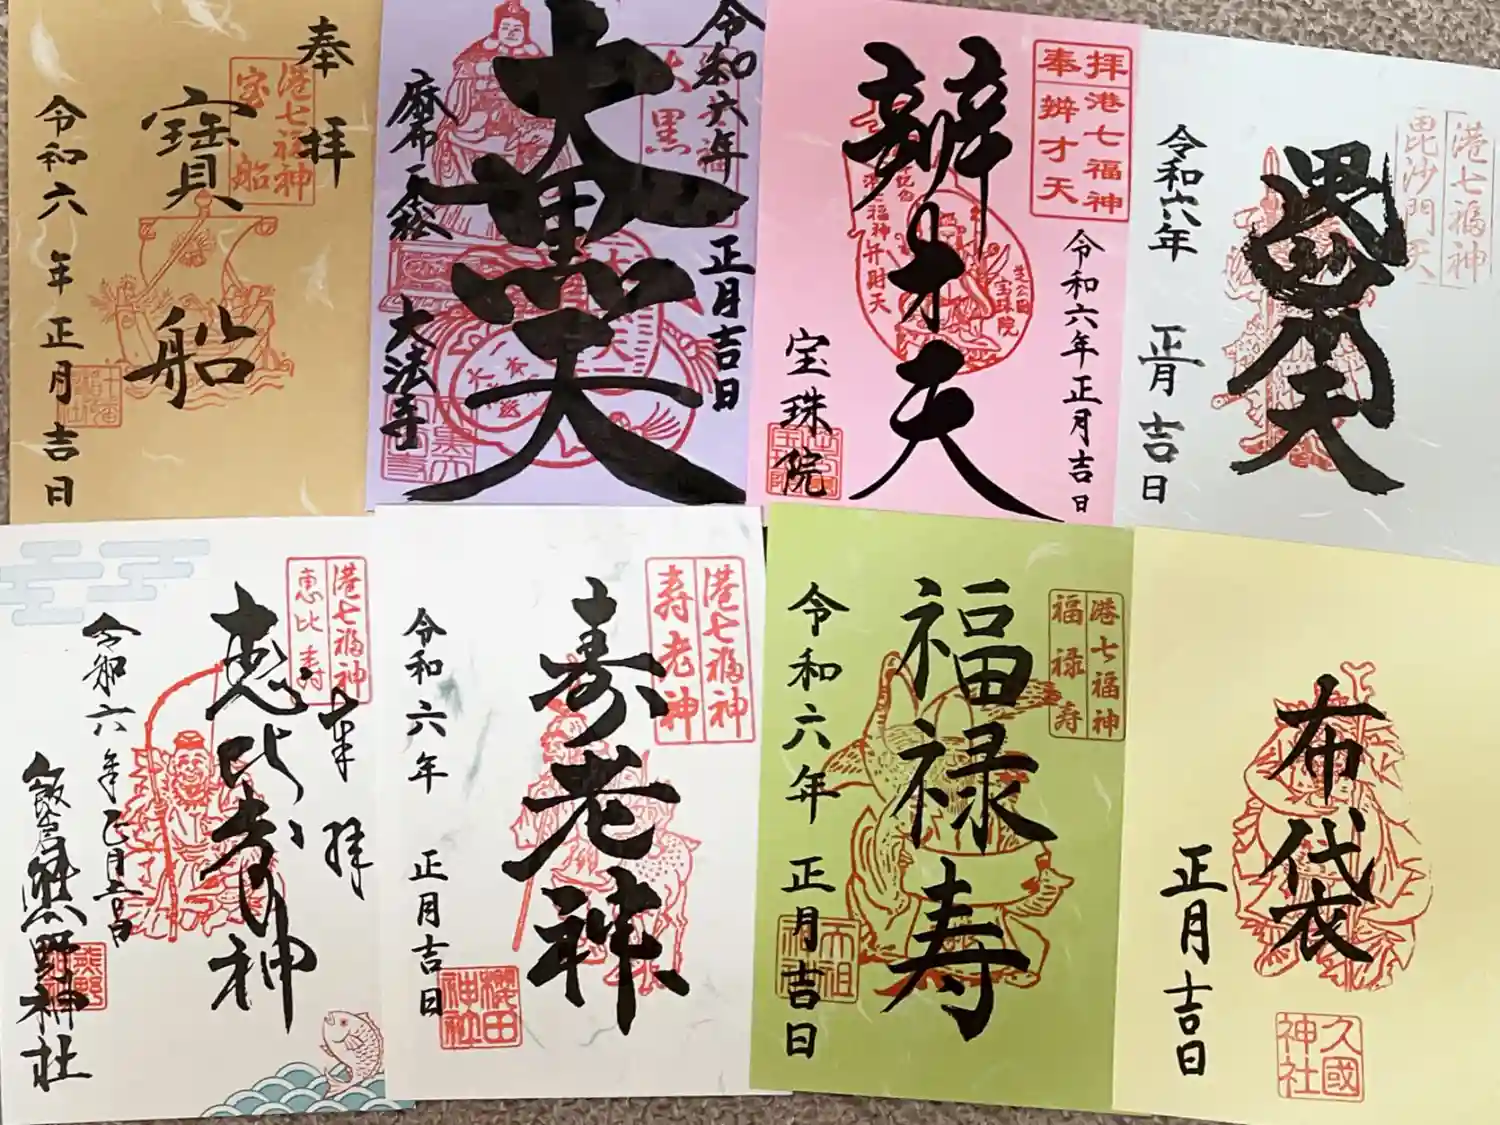 奉拝
港七福神
宝船
寶船
令和六年正月吉日
令和六年
正月吉日
大黒天
麻布一本松
大法寺
拝港七福神
奉辨才天
辨才天
令和六年正月吉日
宝珠院
港七福神
毘沙門天
毘沙門天
令和六年
正月吉日
港七福神
恵比寿
奉拝
恵比寿神
令和六年正月吉日
飯倉熊野神社
港七福神
寿老神
寿老神
令和六年
正月吉日
櫻田
神社
港七福神
福禄寿
福禄寿
令和六年
正月吉日
布袋
正月吉日
久國
神社